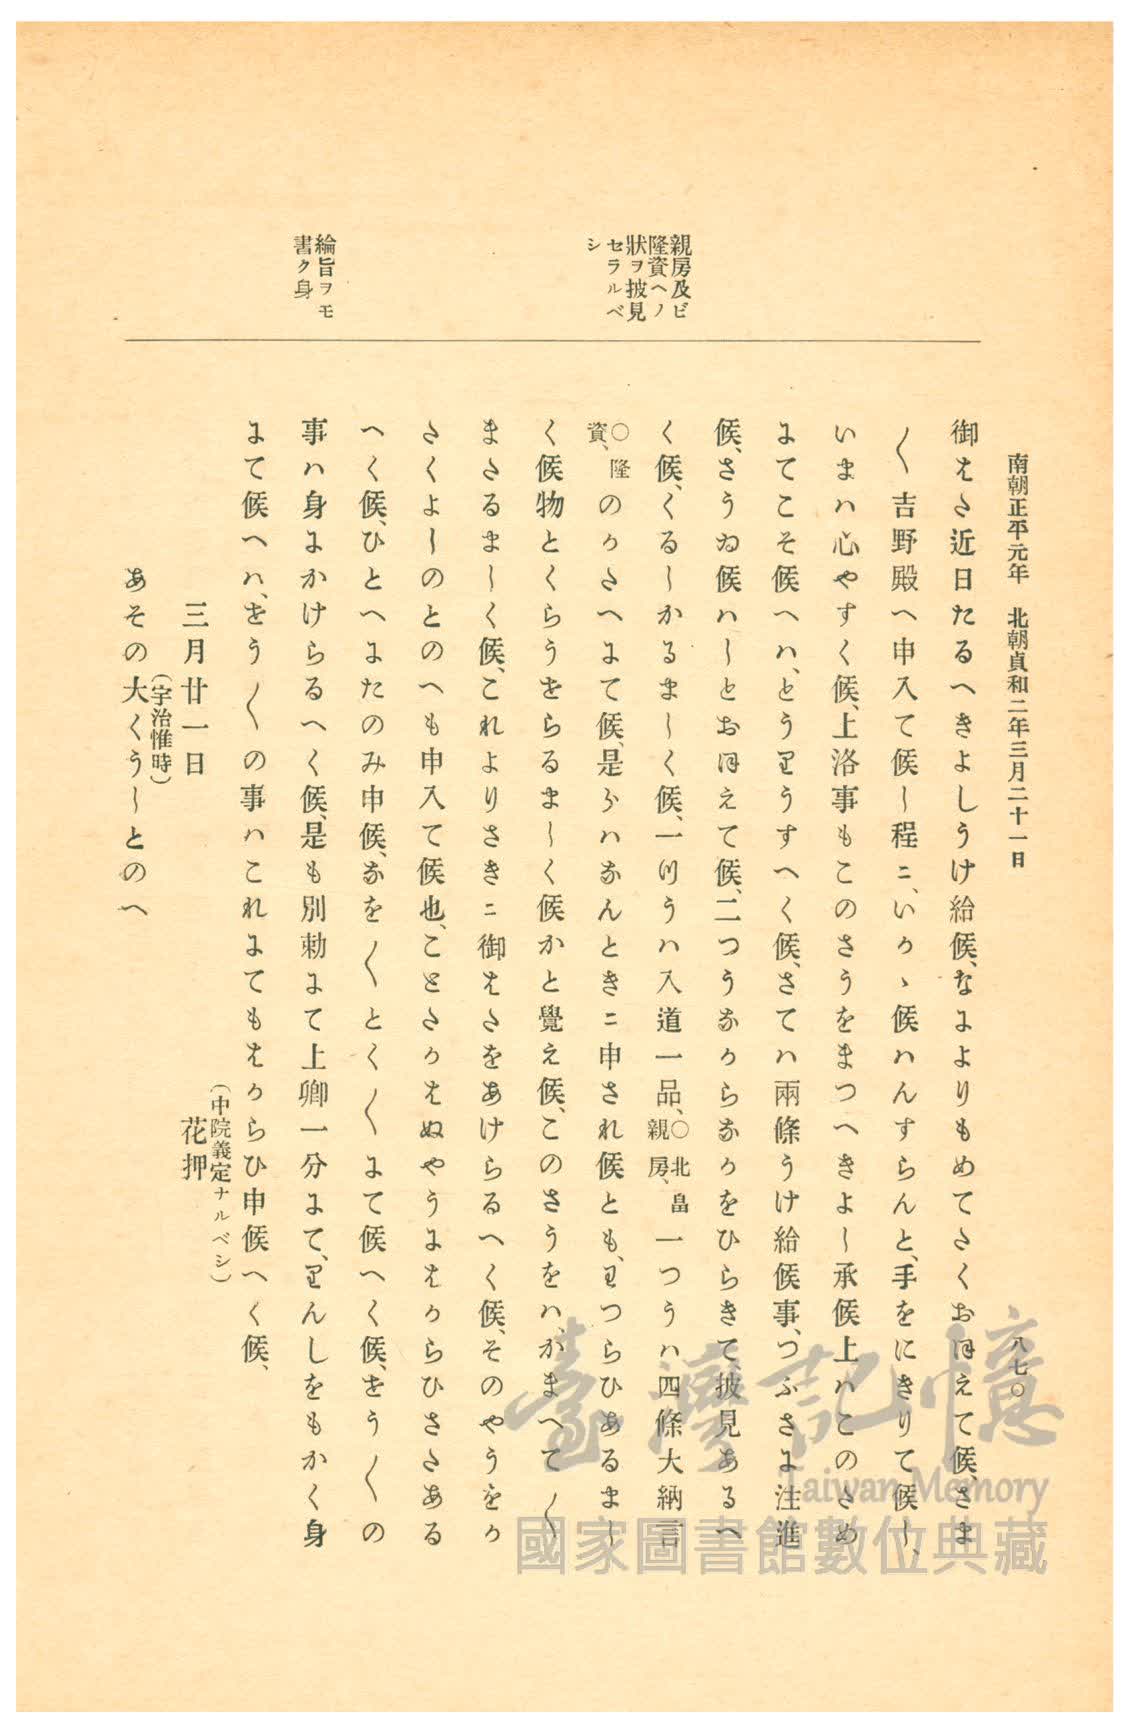 南朝正平元年　北朝貞和二年三月二十一日
八七〇
御はた近日たるへきよしうけ給候、なによりもめてたくおほえて候、さま
〳〵吉野殿へ申入て候し程ニ、いかゝ候ハんすらんと、手をにきりて候し、
いまハ心やすく候、上洛事もこのさうをまつへきよし承候上ハこのさめ
にてこそ候へハ、とうりうすへく候、さてハ兩條うけ給候事、つふさに注進
候、さうゐ候ハしとおほえて候、二つうなからなかをひらきて、披見あるへ
く候、くるしかるましく候、一つうハ入道一品、○北畠親房、一つうハ四條大納言
○隆資、のかたへにて候、是らハなんときニ申され候とも、わつらひあるまし
く候物とくらうをらるましく候かと覺え候、このさうをハ、かまへて〳〵
まさるましく候、これよりさきニ御はたをあけらるへく候、そのやうをか
さくよしのとのへも申入て候也、ことたかはぬやうにはからひさたある
へく候、ひとへにたのみ申候、なを〳〵とく〳〵にて候へく候、をう〳〵の
事ハ身にかけらるへく候、是も別勅にて上卿一分にて、りんしをもかく身
にて候へハ、をう〳〵の事ハこれにてもはからひ申候へく候、
（中院義定ナルベシ）
三月廿一日　花押
（宇治惟時）
あその大くうしとのへ
親房及ビ
隆資ヘノ
狀ヲ披見
セラルベ
シ
綸旨ヲモ
書ク身
臺灣記憶
Taiwan Memory
國家圖書館數位典藏